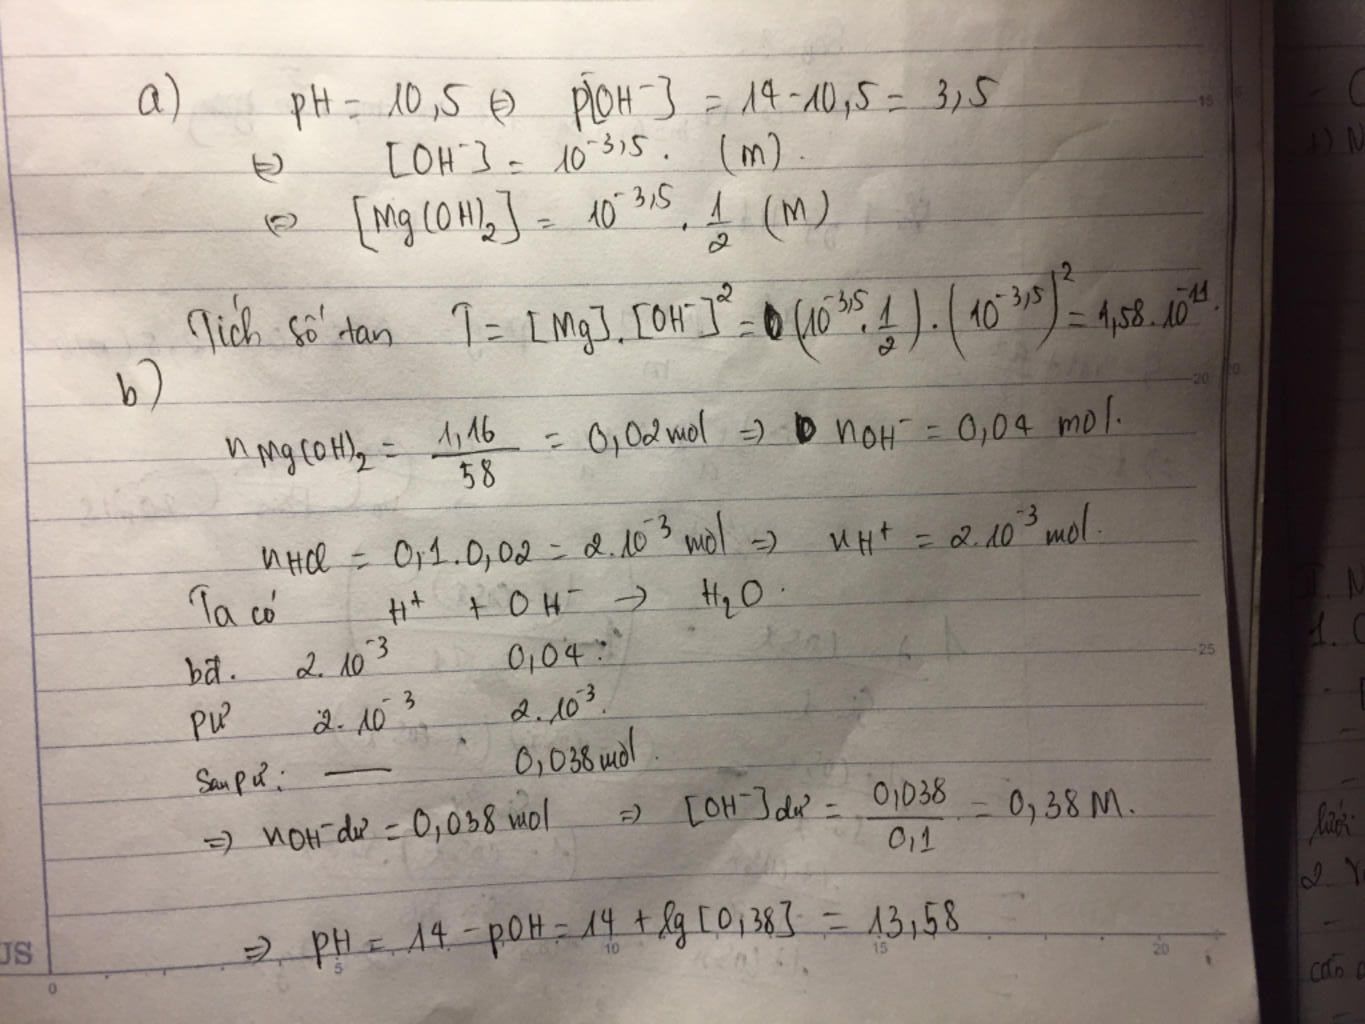 a) pH = 10,5 ⇔ p[OH⁻] = 14 - 10,5 = 3,5
⇔ [OH⁻] = 10⁻³,⁵. (M).
⇔ [Mg(OH)₂] = 10⁻³,⁵ . 1/2 (M)
Tích số tan T = [Mg].[OH⁻]² = (10⁻³,⁵. 1/2).(10⁻³,⁵)² = 1,58.10⁻¹¹.
b)
nMg(OH)₂ = 1,16/58 = 0,02mol ⇒ nOH⁻ = 0,04 mol.
nHCl = 0,1.0,02 = 2.10⁻³ mol ⇒ nH⁺ = 2.10⁻³ mol.
Ta có H⁺ + OH⁻ → H₂O.
bđ. 2.10⁻³ 0,04.
pứ 2.10⁻³ 2.10⁻³.
Sau pứ: — 0,038mol.
⇒ nOH⁻dư = 0,038 mol ⇒ [OH⁻]dư = 0,038/0,1 = 0,38M.
⇒ pH = 14 - pOH = 14 + lg[0,38] = 13,58
15
20
25
US
0 5 10 15 20
1.
2.